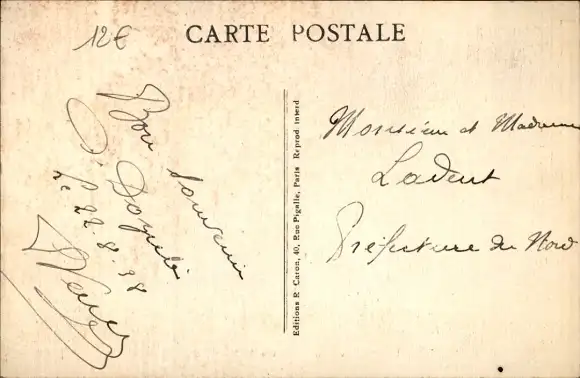 12€
CARTE POSTALE
Bon souvenir
Le 22.8.38
Editions P. Caron, 40, Rue Pigalle, Paris Reprod. interd
Monsieur et Madame
Ladent
Préfecture du Nord